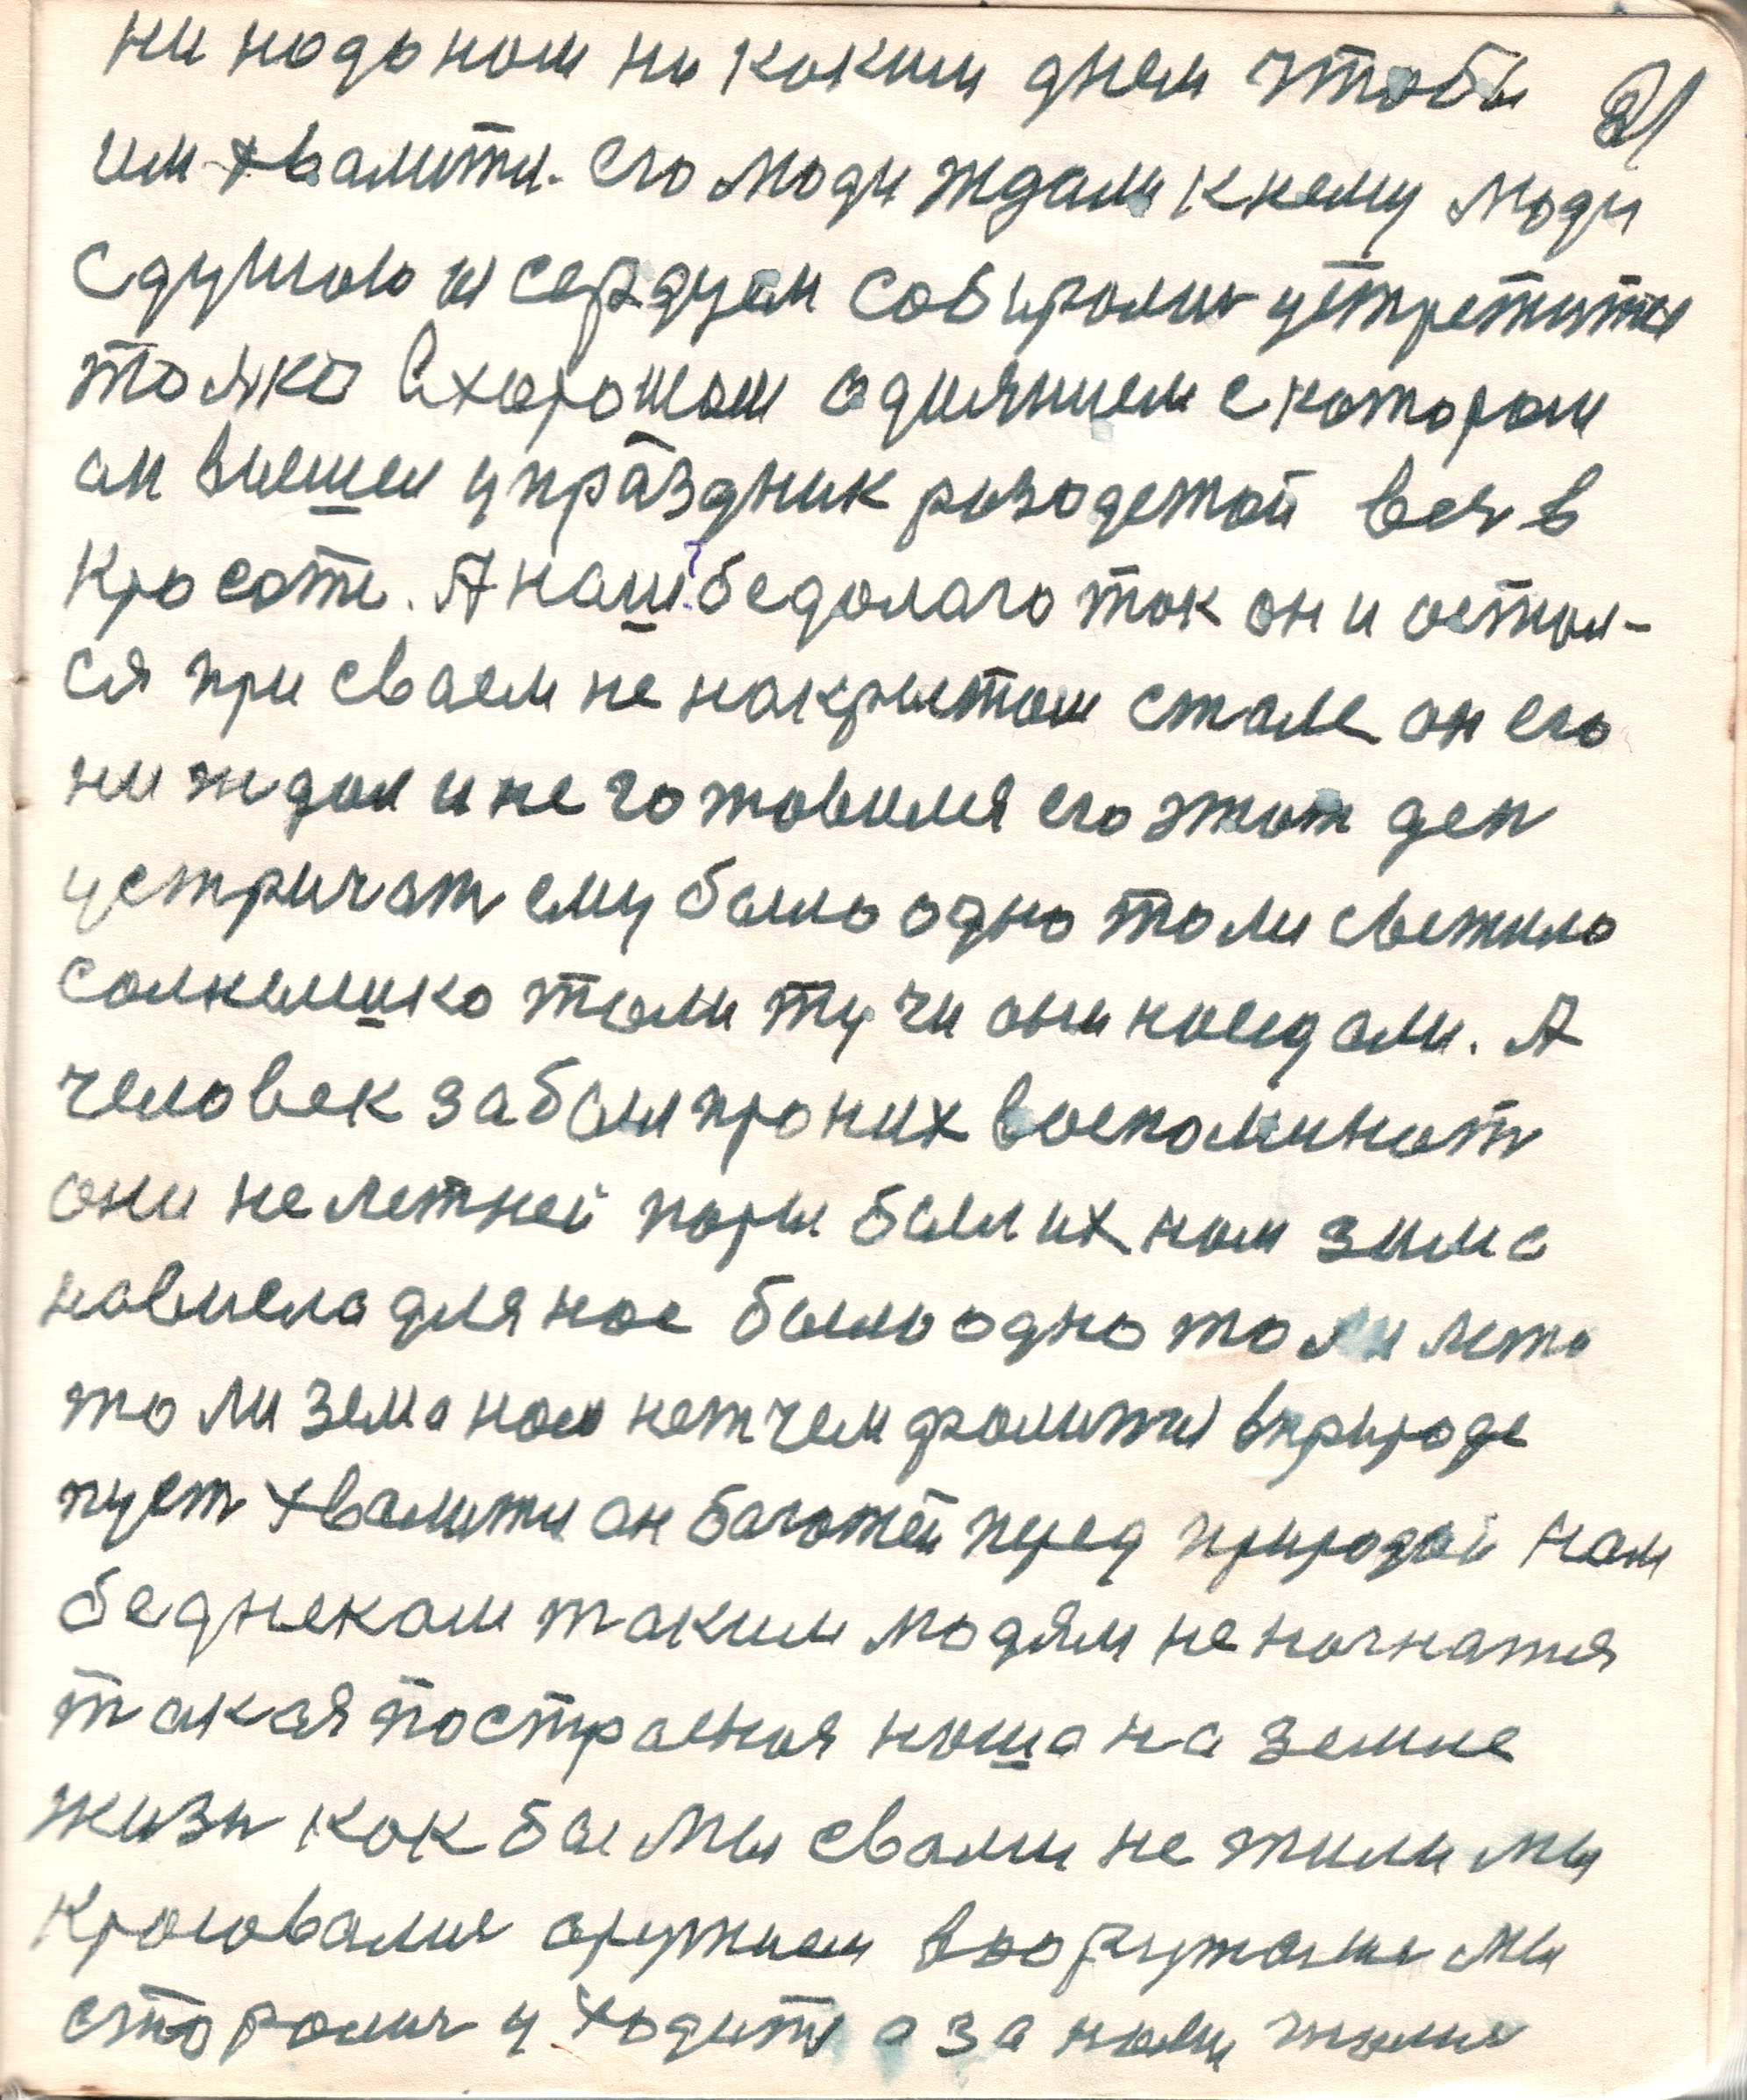 ни надо нам ни каким днем чтобы 21
им хвалити. его люди ждали к нему люди
с душою и сердцем собирались устретити
толко в хорошом одиянием с котором
он вышел у праздник разодетой вся в
красоте. А наш бедолага так он и остал-
ся при сваем не накрытом стале он его
ни ждал и не готовился его этот ден
устричат ему было одно то ли светило
солнышко толи тучи они кидали. А
человек забыл про них воспоминат
они не летней поры были их нам зима
навиела для нас было одно то ли лето
то ли зема нам нет чем фалитьи в природе
пуст хвалити он богатей перед природой нам
беднекам таким людям не начнатся
такая построеная ноша на земле
жизн как бы мы свами не жили мы
красовалис оружием вооружоные мы
старолис уходить а за нами